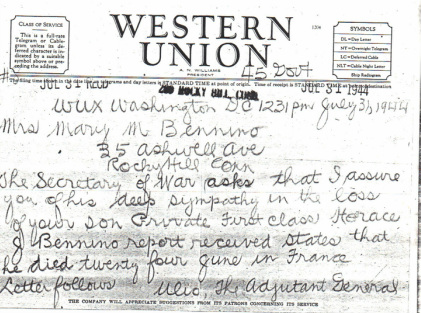 CLASS OF SERVICE
This is a full-rate
Telegram or Cable-
gram unless its de-
ferred character is in-
dicated by a suitable
symbol above or pre-
ceding the address.
WESTERN
UNION
A. N. WILLIAMS
PRESIDENT
1204
SYMBOLS
DL = Day Letter
NT = Overnight Telegram
LC = Deferred Cable
NLT = Cable Night Letter
Ship Radiogram
45 Govt
The filing time shown in the date line on telegrams and day letters is STANDARD TIME at point of origin. Time of receipt is STANDARD TIME at point of destination.
JUL 31 ROCKY HILL, CONN. JUL 31 1944
WUX Washington DC 1231pm July 31, 1944
Mrs Mary M Bennino
35 Ashwell Ave
Rocky Hill Conn
The Secretary of War asks that I assure
you of his deep sympathy in the loss
of your son Private First Class Horace
J Bennino report received states that
he died twenty four June in France
Letter follows Ulio The Adjutant General
THE COMPANY WILL APPRECIATE SUGGESTIONS FROM ITS PATRONS CONCERNING ITS SERVICE